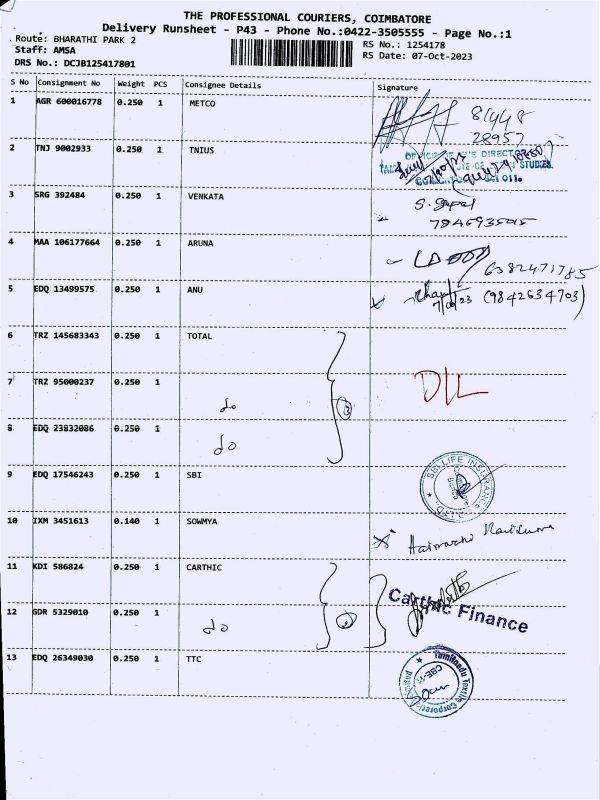 THE PROFESSIONAL COURIERS, COIMBATORE
Delivery Runsheet - P43 - Phone No.:0422-3505555 - Page No.:1
Route: BHARATHI PARK 2
RS No.: 1254178
Staff: AMSA
RS Date: 07-Oct-2023
DRS No.: DCJB125417801
S No Consignment No Weight PCS Consignee Details Signature
1 AGR 600016778 0.250 1 METCO
2 TNJ 9002933 0.250 1 TNIUS
DIRECTOR
STUDIES
3 SRG 392484 0.250 1 VENKATA
S. Gopal
4 MAA 106177664 0.250 1 ARUNA
6382471785
5 EDQ 13499575 0.250 1 ANU
(9842634703)
6 TRZ 145683343 0.250 1 TOTAL
7 TRZ 95000237 0.250 1 do 3
8 EDQ 23832086 0.250 1 do
9 EDQ 17546243 0.250 1 SBI
SBI LIFE INSURANCE CO. LTD.
10 IXM 3451613 0.140 1 SOWMYA
11 KDI 586824 0.250 1 CARTHIC
Carthic Finance
12 GDR 5329010 0.250 1 do 2
13 EDQ 26349030 0.250 1 TTC
Tamilnadu Textile Corporation Limited
CBE-11